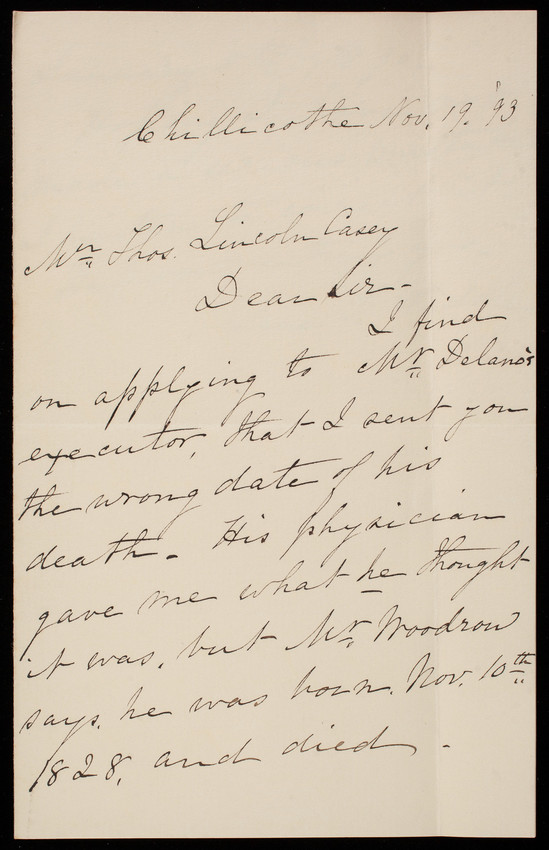 Chillicothe Nov. 19. '93
Mr. Thos. Lincoln Casey
Dear Sir -
I find
on applying to Mr. Delano's
executor, that I sent you
the wrong date of his
death - His physician
gave me what he thought
it was, but Mr. Woodrow
says, he was born. Nov. 10th
1828, and died -